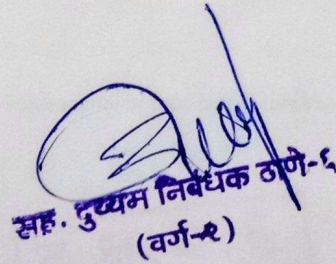 सह. दुय्यम निबंधक ठाणे-६
(वर्ग-२)